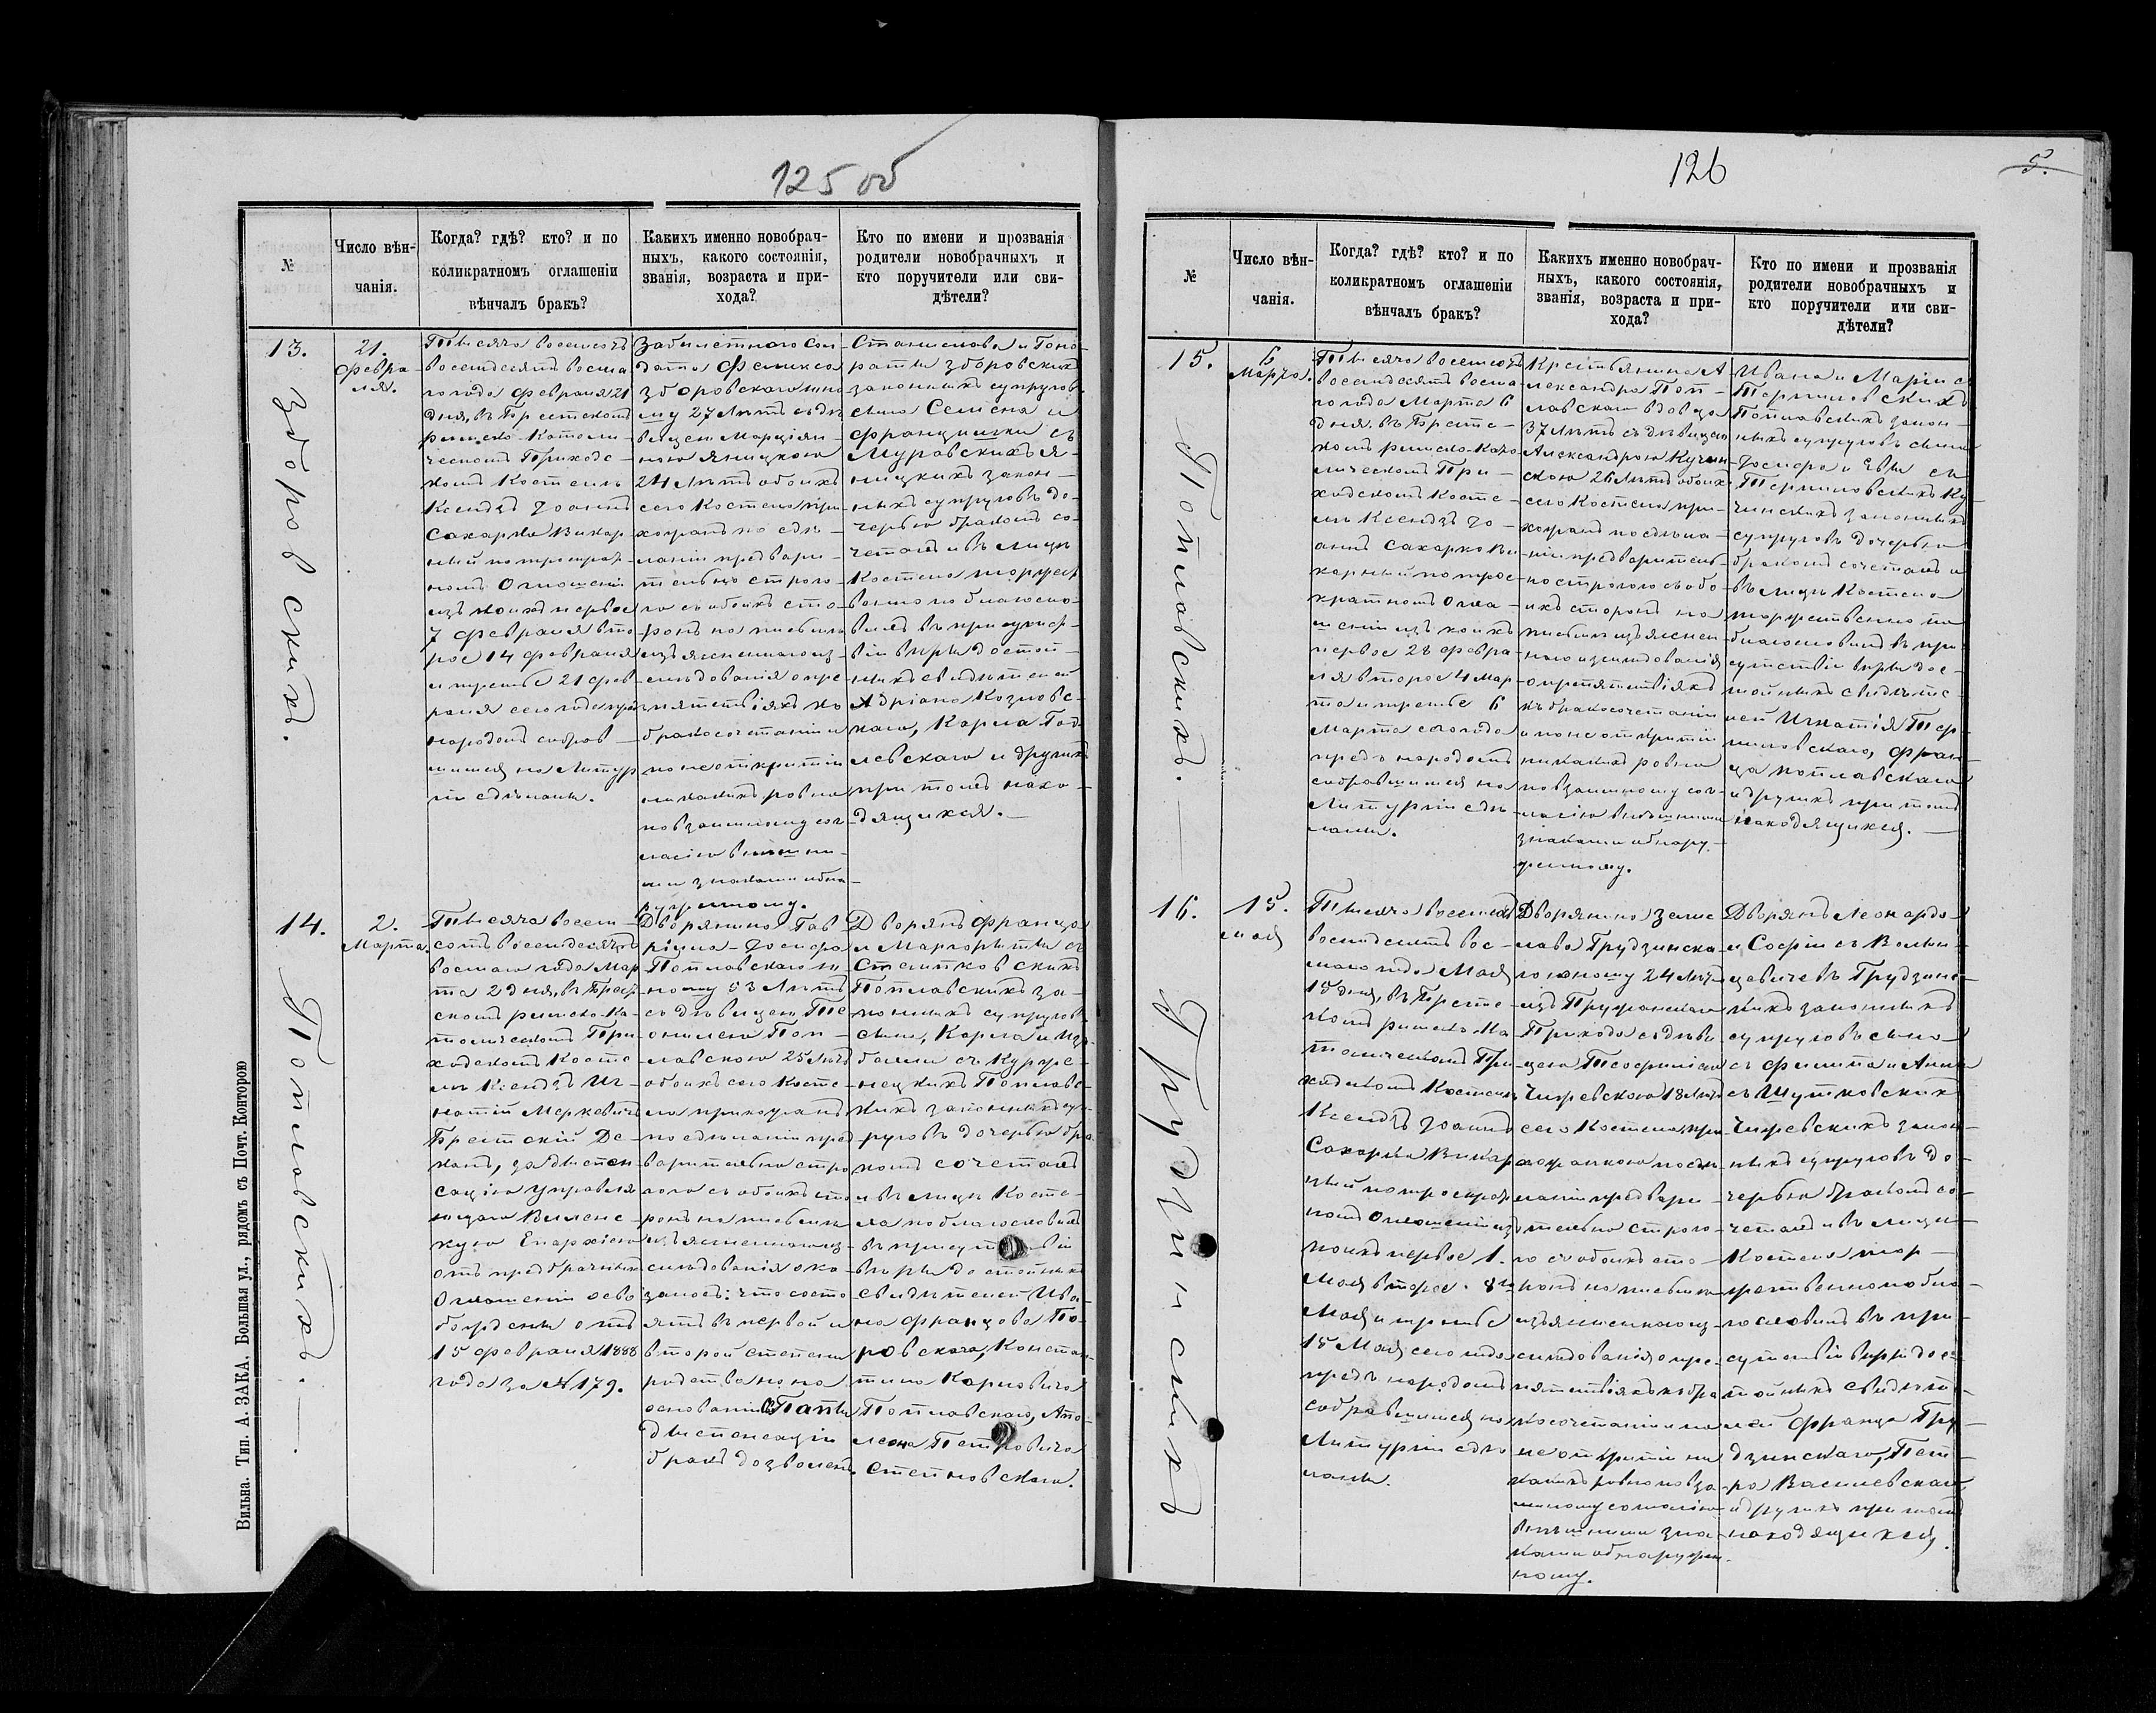 125 об
№
Число вѣн-
чанія.
Когда? гдѣ? кто? и по
коликратномъ оглашеніи
вѣнчалъ бракъ?
Какихъ именно новобрач-
ныхъ, какого состоянія,
званія, возраста и при-
хода?
Кто по имени и прозванія
родители новобрачныхъ и
кто поручители или сви-
дѣтели?
13.
Зборовскихъ.
21.
Февра
ля.
Тысяча восемсотъ
восемдесятъ восма
го года Февраля 21
дня, въ Брестскомъ
римско-Католи-
ческомъ Приходс-
комъ Костелѣ
Ксендзъ Іоаннъ
Сахарко Викар
ный по троекрат-
номъ Оглашеніи
изъ коихъ первое
7 Февраля вто
рое 14 Февраля
и третье 21 Фев
раля сего года пре
народомъ собрав-
шимся на Литур
гіи сдѣланы.
Забилетного Сол-
дата Феликса
Зборовскаго юно
шу 27 Лѣтъ съ дѣ
вицею Марціан-
ною Яницкою
24 Лѣтъ обоихъ
сего Костела при
хожанъ по сдѣ-
ланіи предвари-
тельно строго-
го съ обоихъ сто-
ронъ на письмѣ
изъясненнаго из-
слѣдованія о пре
пятствіяхъ къ
бракосочетанію и
по неоткрытіи
никакихъ ровно
по взаимному сог
ласію внѣшни-
ми знаками обна-
руженному.
Станислава и Гоно-
раты Зборовскихъ
законныхъ супруговъ
сына Семіона и
Францишки съ
Муравскихъ Я-
ницкихъ закон-
ныхъ супруговъ до-
черью бракомъ со-
четалъ и въ лицѣ
Костела торжест
венно поблагосло-
вилъ въ присутст-
віи вѣры достой-
ныхъ свидѣтелей
Адріана Козловс-
каго, Карла Год
левскаго и другихъ
при томъ нахо-
дящихся.-
14.
Поплавскихъ.-
2.
Марта.
Тысяча восем-
сотъ восемдесятъ
восмаго года Мар
та 2 дня, въ Брест
скомъ римско-Ка-
толическомъ При
ходскомъ Косте
лѣ Ксендзъ Иг-
натій Меркевичъ
Брестскій Де-
канъ, за диспен
сацію Управля
ющаго Виленс-
кую Епархіею
отъ предбрачныхъ
Оглашеній осво
бождены отъ
15 Февраля 1888
года за № 179.
Дворянина Гав-
ріила-Іосифа
Поплавскаго ю-
ношу 53 Лѣтъ
съ дѣвицею Те
офилею Поп-
лавскою 25 Лѣтъ
обоихъ сего Косте-
ла прихожанъ
по сдѣланіи пред
варительно стро
гаго съ обоихъ сто
ронъ на письмѣ
изъясненнаго из-
слѣдованія ока-
залось: что состо
ятъ въ первой и
второй степени
родства но на
основаніи Папы
диспенсаціи
бракъ дозволенъ.
Дворянъ Франца
и Маргориты съ
Стемпковскихъ
Поплавскихъ за-
конныхъ супруговъ
сына, Карла и Иза
беллы съ Курже-
нецкихъ Поплавс-
кихъ законныхъ суп-
руговъ дочерью бра-
комъ сочеталъ
и въ лицѣ Косте-
ла поблагословилъ
въ присутствіи
вѣры достойныхъ
свидѣтелей Ива-
на Францова По-
ровскаго, Констан-
тина Карловича
Поплавскаго, Апо-
леона Петровича
Степновскаго.
Вильна. Тип. А. ЗАКА. Большая ул., рядомъ съ Почт. Конторою
126
5.
№
Число вѣн-
чанія.
Когда? гдѣ? кто? и по
коликратномъ оглашеніи
вѣнчалъ бракъ?
Какихъ именно новобрач-
ныхъ, какого состоянія,
званія, возраста и при-
хода?
Кто по имени и прозванія
родители новобрачныхъ и
кто поручители или сви-
дѣтели?
15.
Поплавскихъ.-
6
Марта.
Тысяча восемсотъ
восемдесятъ восма-
го года Марта 6
дня, въ Брестс-
комъ римско-Като
лическомъ При-
ходскомъ Косте-
лѣ Ксендзъ Іо-
аннъ Сахарко Ви-
карный по трое-
кратномъ Огла-
шеніи изъ коихъ
первое 28 Февра-
ля второе 4 Мар-
та и третье 6
Марта сего года
предъ народомъ
собравшимся на
Литургіи сдѣ-
ланы.
Крестьянина А-
лександра Поп-
лавскаго вдовца
37 Лѣтъ съ дѣвицею
Александрою Кучин
скою 26 Лѣтъ обоихъ
сего Костела при-
хожанъ по сдѣла-
ніи предваритель-
но строгаго съ обо-
ихъ сторонъ на
письмѣ изъяснен-
наго изслѣдованія
о препятствіяхъ
къ бракосочетанію
и по неоткрытіи
никакихъ ровно
по взаимному сог-
ласію внѣшними
знаками обнару-
женному.
Ивана и Маріи съ
Терликовскихъ
Поплавскихъ закон-
ныхъ супруговъ сына
Іосифа и Евы съ
Терликовскихъ Ку
чинскихъ законныхъ
супруговъ дочерью
бракомъ сочеталъ и
въ лицѣ Костела
торжественно по
благословилъ въ при
сутствіи вѣры дос-
тойныхъ свидѣте-
лей Игнатія Тер-
ликовскаго, Фран-
ца Поплавскаго
и другихъ при томъ
находящихся.-
16.
Грудзинскихъ
15.
мая
Тысяча восемсотъ
восемдесятъ вос-
маго года Мая
15 дня, въ Брестс-
комъ римско-Ка
толическомъ При
ходскомъ Костелѣ
Ксендзъ Іоаннъ
Сахарко Викар
ный по троекрат
номъ Оглашеніи изъ
коихъ первое 1.
Мая второе 8го
Мая и третье
15 Мая сего года
предъ народомъ
собравшимся на
Литургіи сдѣ
ланы.
Дворянина Заме
лава Грудзинска-
го юношу 24 Лѣтъ
изъ Пружанскаго
Прихода съ дѣви
цею Теофилею
Чижевскою 18 Лѣтъ
сего Костела при
хожанкою по сдѣ
ланіи предвари-
тельно строго-
го съ обоихъ сто-
ронъ на письмѣ
изъясненнаго из-
слѣдованія о пре-
пятствіяхъ къ бра
косочетанію и по
неоткрытіи ни
какихъ ровно по вза
имному согласію
внѣшними зна-
ками обнаружен-
ному.
Дворянъ Леонарда
и Софіи съ Волын
цевичевъ Грудзинс-
кихъ законныхъ
супруговъ сына
съ Филипа и Анны
съ Шутковскихъ
Чижевскихъ закон
ныхъ супруговъ до-
черью бракомъ со-
четалъ и въ лицѣ
Костела тор-
жественно побла-
гословилъ въ при-
сутствіи вѣры дос-
тойныхъ свидѣте
лей Франца Гру-
дзинскаго, Пет-
ра Василевскаго
и другихъ при томъ
находящихся.